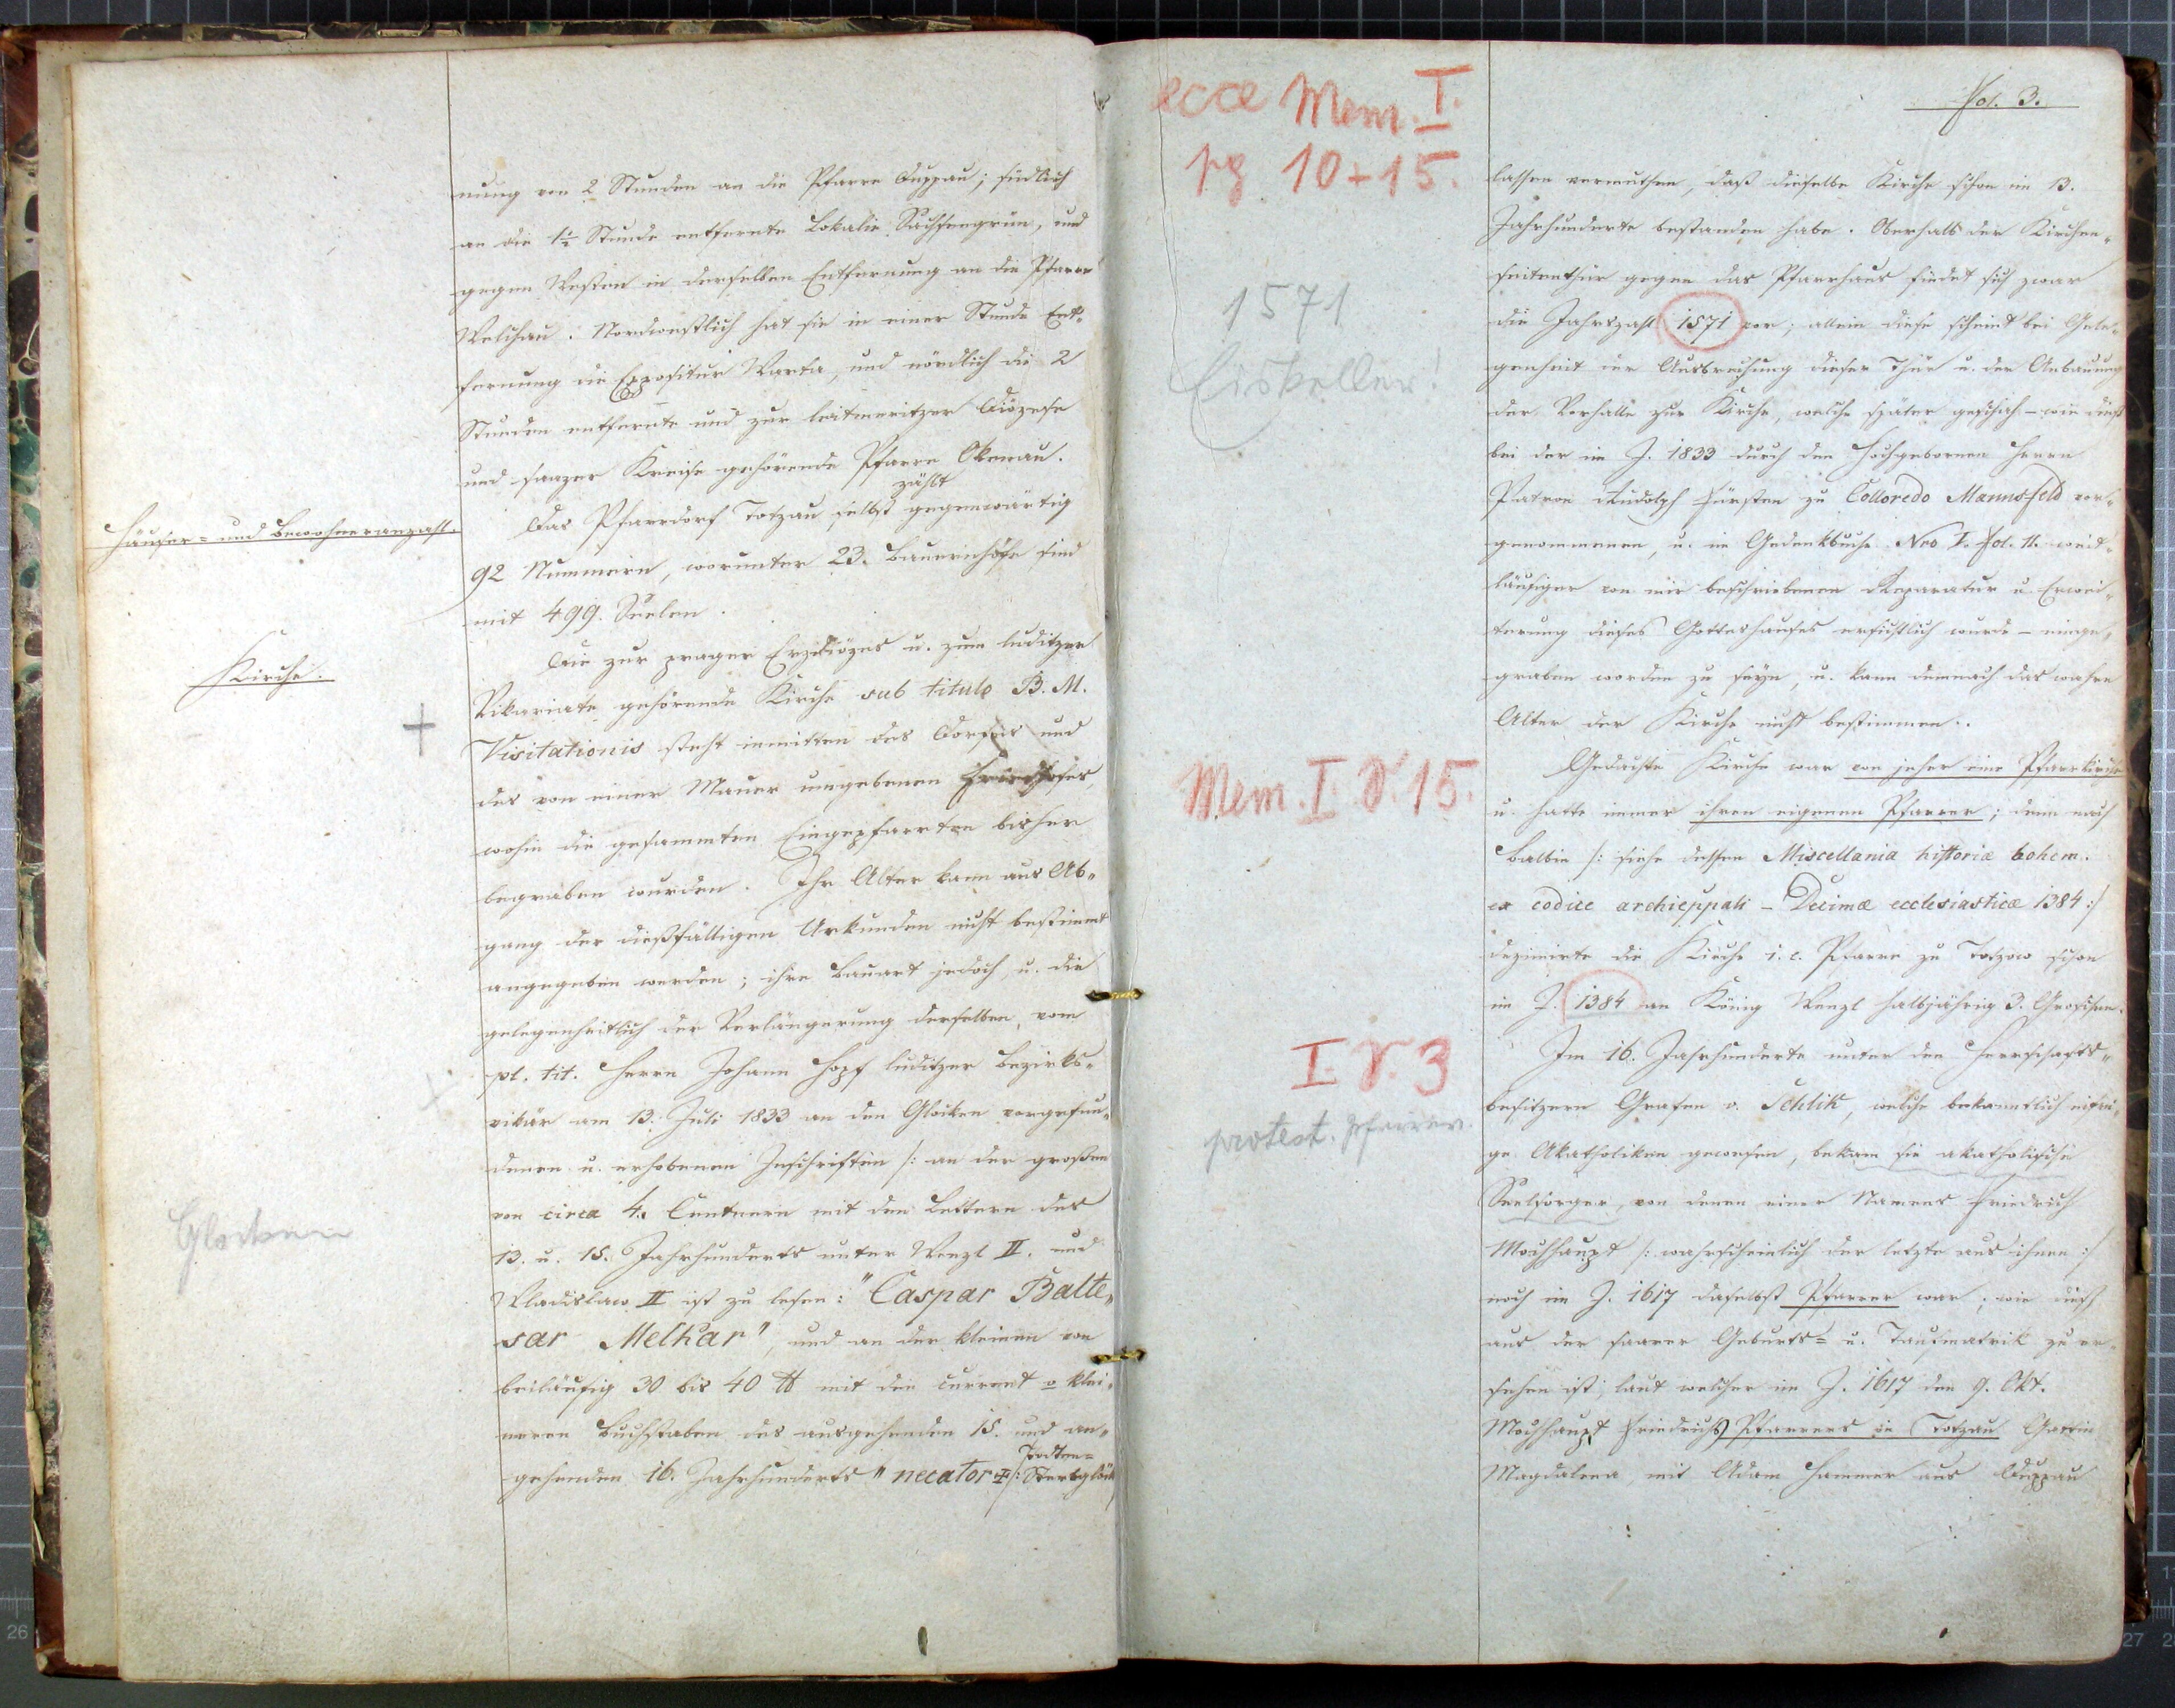 nung von 2 Stunden an die Pfarre Duppau; südlich
an die 1½ Stunde entfernte Lokalie Sachsengrün, und
gegen Westen in derselben Entfernung an die Pfarre
Welchau. Nordwestlich hat sie in einer Stunde Ent-
fernung die Expositur Warta, und nördlich die 2
Stunden entfernte und zur leitmeritzer Diözese
und saazer Kreise gehörende Pfarre Okenau.
Häuser- und Bewohneranzahl.
zählt
Das Pfarrdorf Totzau selbst gegenwärtig
92 Nummern, worunter 23. Bauernhöfe sind
mit 499. Seelen.
Kirche.
Die zur prager Erzdiözes u. zum luditzer
Vikariate gehörende Kirche sub titulo B. M.
Visitationis steht inmitten des Dorfes und
des von einer Mauer umgebenen Friedhofes,
wohin die gesammten Eingepfarrten bisher
begraben wurden. Ihr Alter kann aus Ab-
gang der dießfälligen Urkunden nicht bestimmt
angegeben werden; ihre Bauart jedoch, u. die
gelegenheitlich der Verlängerung derselben, vom
pl. tit. Herrn Johann Hopf luditzer Bezirks-
vikär am 13. Juli 1833 an den Glocken vorgefun-
denen u. erhobenen Inschriften /: an der großen
von circa 4. Centnern mit den Lettern des
Glocken
13. u. 15. Jahrhunderts unter Wenzl II. und
Wladislaw II ist zu lesen: "Caspar Balte-
sar Melkar", und an der kleinen von
beiläufig 30 bis 40 ℔ mit den current o klei-
neren Buchstaben des ausgehenden 15. und an-
Todten-
gehenden 16. Jahrhunderts "necator /: Sterbglöck
Fol. 3.
ecce Mem. I.
pg 10+15.
lassen vermuthen, daß dieselbe Kirche schon im 13.
Jahrhunderte bestanden habe. Oberhalb der Kirchen-
seitenthür gegen das Pfarrhaus findet sich zwar
1571
Eiskeller!
die Jahrszahl 1571 vor; allein diese scheint bei Gele-
genheit der Ausbrechung dieser Thür u. der Anbauung
der Vorhalle zur Kirche, welche später geschah – wie dieß
bei der im J. 1833 durch den Hochgebornen Herrn
Patron Rudolph Fürsten zu Colloredo Mannsfeld vor-
genommenen, u. im Gedenkbuche Nro I. Fol. 11. weit-
läufiger von mir beschriebenen Reparatur u. Erwei-
terung dieses Gotteshauses ersichtlich wurde – einge-
graben worden zu seyn, u. kann demnach das wahre
Alter der Kirche nicht bestimmen.
Mem. I. F. 15.
Gedachte Kirche war von jeher eine Pfarrkirche
u. hatte immer ihren eigenen Pfarrer; denn nach
Balbin /: siehe dessen Miscellania historiæ bohem.
ex codice archieppali – Decimæ ecclesiasticæ 1384 :/
dezimirte die Kirche i. e. Pfarre zu Totzow schon
im J. 1384 an König Wenzl halbjährig 3. Groschen.
I. F. 3
protest. Pfarrer.
Im 16. Jahrhunderte unter den Herrschafts-
besitzern Grafen v. Schlik, welche bekanntlich eifri-
ge Akatholiken gewesen, bekam sie akatholische
Seelsorger, von denen einer Namens Friedrich
Mochhaupt /: wahrscheinlich der letzte aus ihnen :/
noch im J. 1617 daselbst Pfarrer war; wie dieß
aus der saarer Geburts- u. Taufmatrik zu er-
sehen ist; laut welcher im J. 1617 den 9. Okt.
Mochhaupt Friedrichs Pfarrers in Totzau Gattin
Magdalena, mit Adam Hammer aus Duppau